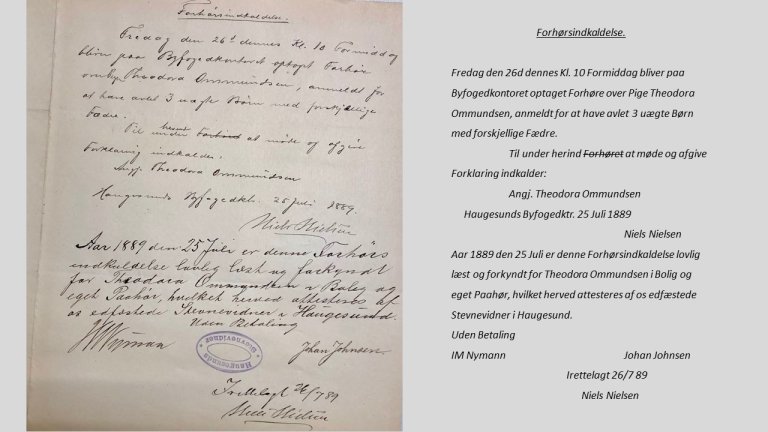 Forhørsindkaldelse.
Fredag den 26d dennes Kl. 10 Formiddag
bliver paa Byfogedkontoret optaget Forhør
Theodora Ommundsen, anmeldt for
at have avlet 3 uægte Børn med forskjellige
Fædre.
Til under herind Forhøret at møde og afgive
Forklaring indkaldes:
Angj. Theodora Ommundsen
Haugesunds Byfogedktr. 25 Juli 1889.
Niels Nielsen
Aar 1889 den 25 Juli er denne Forhørs
indkaldelse lovlig læst og forkyndt
for Theodora Ommundsen i Bolig og
eget Paahør, hvilket herved attesteres af
os edfæstede Stevnevidner i Haugesund.
Uden Betaling
IM Nyman
Johan Johnsen
Haugesunds
Stevnevidner
Irettelagt 26/7 89
Niels Nielsen
Forhørsindkaldelse.
Fredag den 26d dennes Kl. 10 Formiddag bliver paa
Byfogedkontoret optaget Forhøre over Pige Theodora
Ommundsen, anmeldt for at have avlet 3 uægte Børn
med forskjellige Fædre.
Til under herind Forhøret at møde og afgive
Forklaring indkalder:
Angj. Theodora Ommundsen
Haugesunds Byfogedktr. 25 Juli 1889
Niels Nielsen
Aar 1889 den 25 Juli er denne Forhørsindkaldelse lovlig
læst og forkyndt for Theodora Ommundsen i Bolig og
eget Paahør, hvilket herved attesteres af os edfæstede
Stevnevidner i Haugesund.
Uden Betaling
IM Nymann
Johan Johnsen
Irettelagt 26/7 89
Niels Nielsen